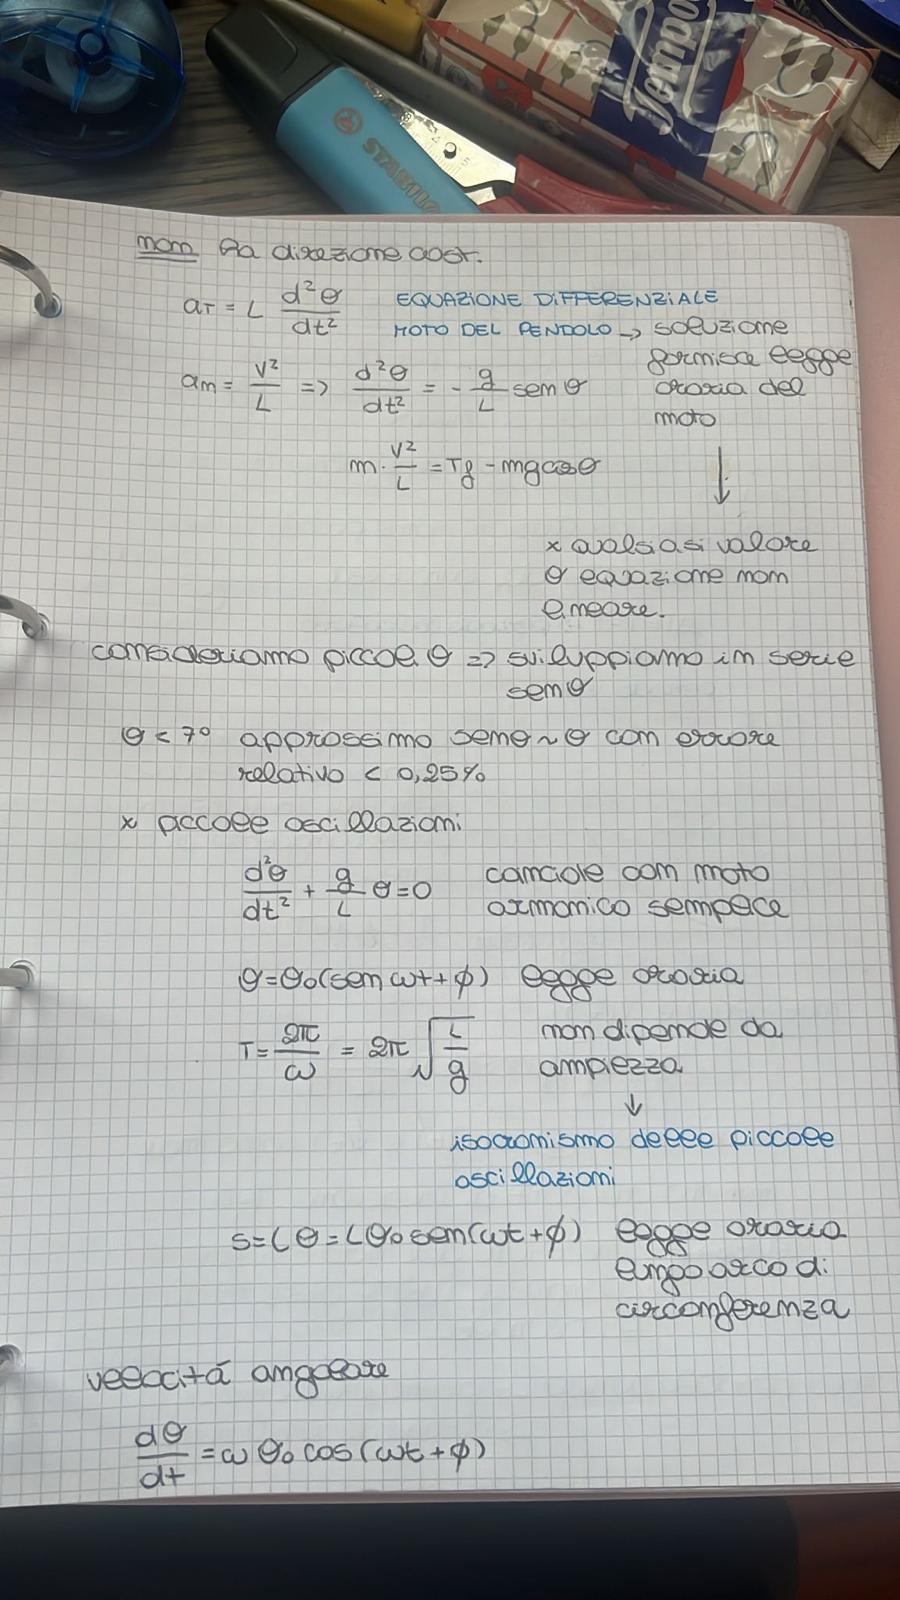 Tempo
STABILO
non ha direzione cost.
aT = L d²θ/dt² EQUAZIONE DIFFERENZIALE
MOTO DEL PENDOLO → soluzione
fornisce legge
aN = v²/L => d²θ/dt² = - g/L sen θ oraria del
moto
m · v²/L = Tf - mg cos θ
↓
x qualsiasi valore
θ equazione non
lineare.
consideriamo piccoli θ => sviluppiamo in serie
sen θ
θ < 7° approssimo senθ ~ θ con errore
relativo < 0,25%
x piccole oscillazioni
d²θ/dt² + g/L θ = 0 camciole con moto
armonico sempece
θ = θ₀(sen ωt + ϕ) legge oraria
T = 2π/ω = 2π √L/g non dipende da
ampiezza
↓
isocronismo delle piccole
oscillazioni
s = Lθ = Lθ₀ sen(ωt + ϕ) legge oraria
lungo arco di
circonferenza
velocitá angolare
dθ/dt = ω θ₀ cos(ωt + ϕ)